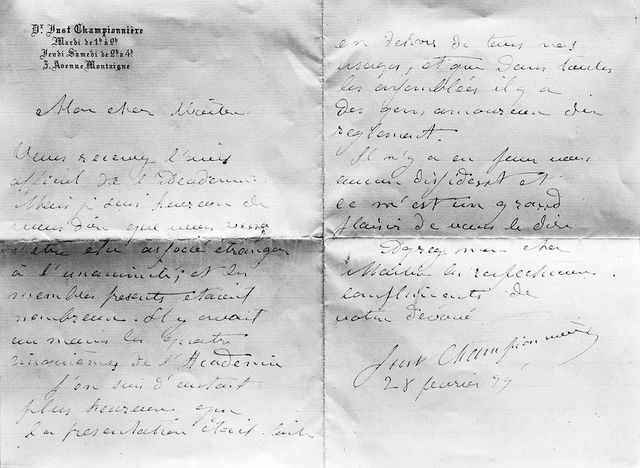 Dr Just Championnière
Mardi de 1h à 2h
Jeudi Samedi de 2h à 4h
3, Avenue Montaigne
Mon cher Maître
Vous recevrez l'avis
officiel de l'Académie
Mais je suis heureux de
vous dire que vous
être élu associé étranger
à l'unanimité; et les
membres présents étaient
nombreux. Il y avait
au moins les quatre
cinquièmes de l'Académie
J'en suis d'autant
plus heureux que
la présentation était faite
en dehors de tous nos
usages, et que dans toutes
les assemblées il y a
des gens amoureux du
règlement.
Il n'y a eu pour vous
aucun dissident et
ce m'est un grand
plaisir de vous le dire
Agréez mon cher
Maître les respectueux
compliments de
votre dévoué
Just Championnière
28 février 99